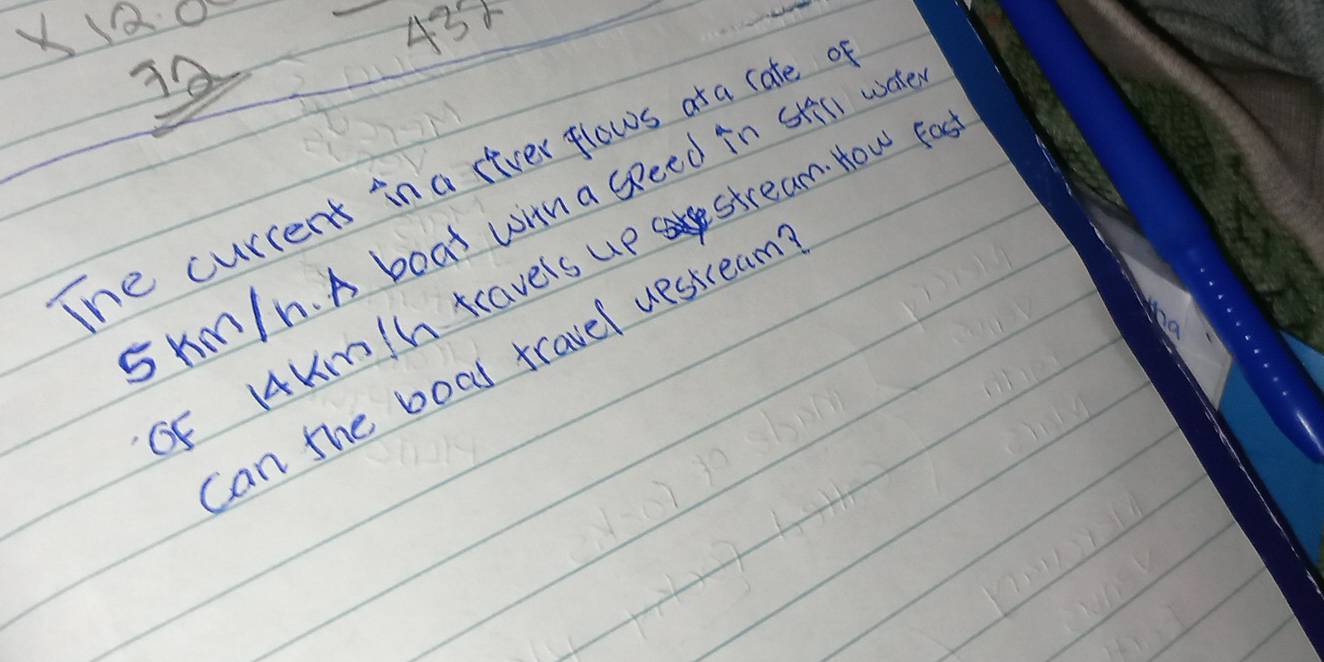 × 12.0
72
437
The current in a river flows at a rate of
5 km/h. A boat with a speed in still water
of 14 km/h travels up stream. How fast
can the boat travel upstream?